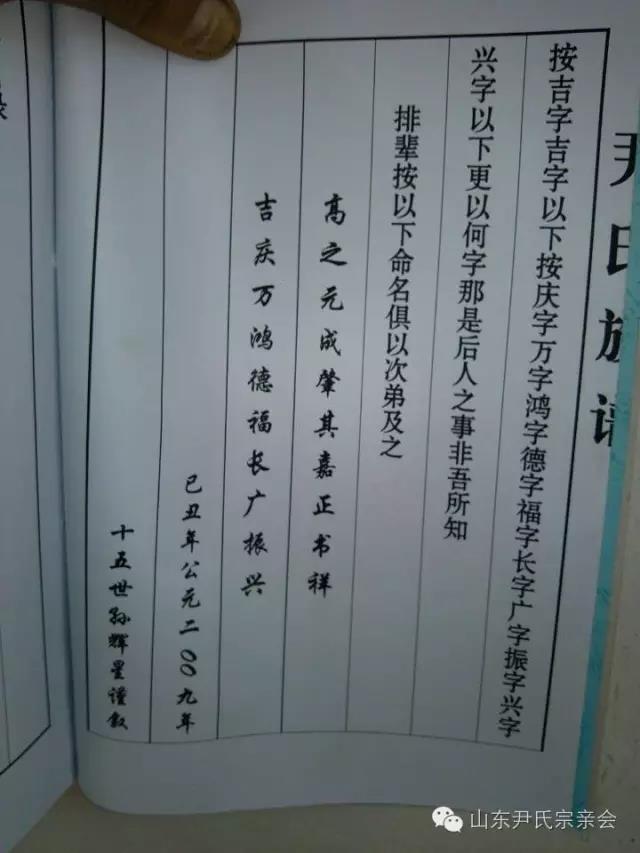 尹氏族谱
按吉字吉字以下按庆字万字鸿字德字福字长字广字振字兴字
兴字以下更以何字那是后人之事非吾所知
排辈按以下命名俱以次弟及之
高之元成肇其嘉正书祥
吉庆万鸿德福长广振兴
己丑年公元二〇〇九年
十五世孙辉星谨叙
山东尹氏宗亲会